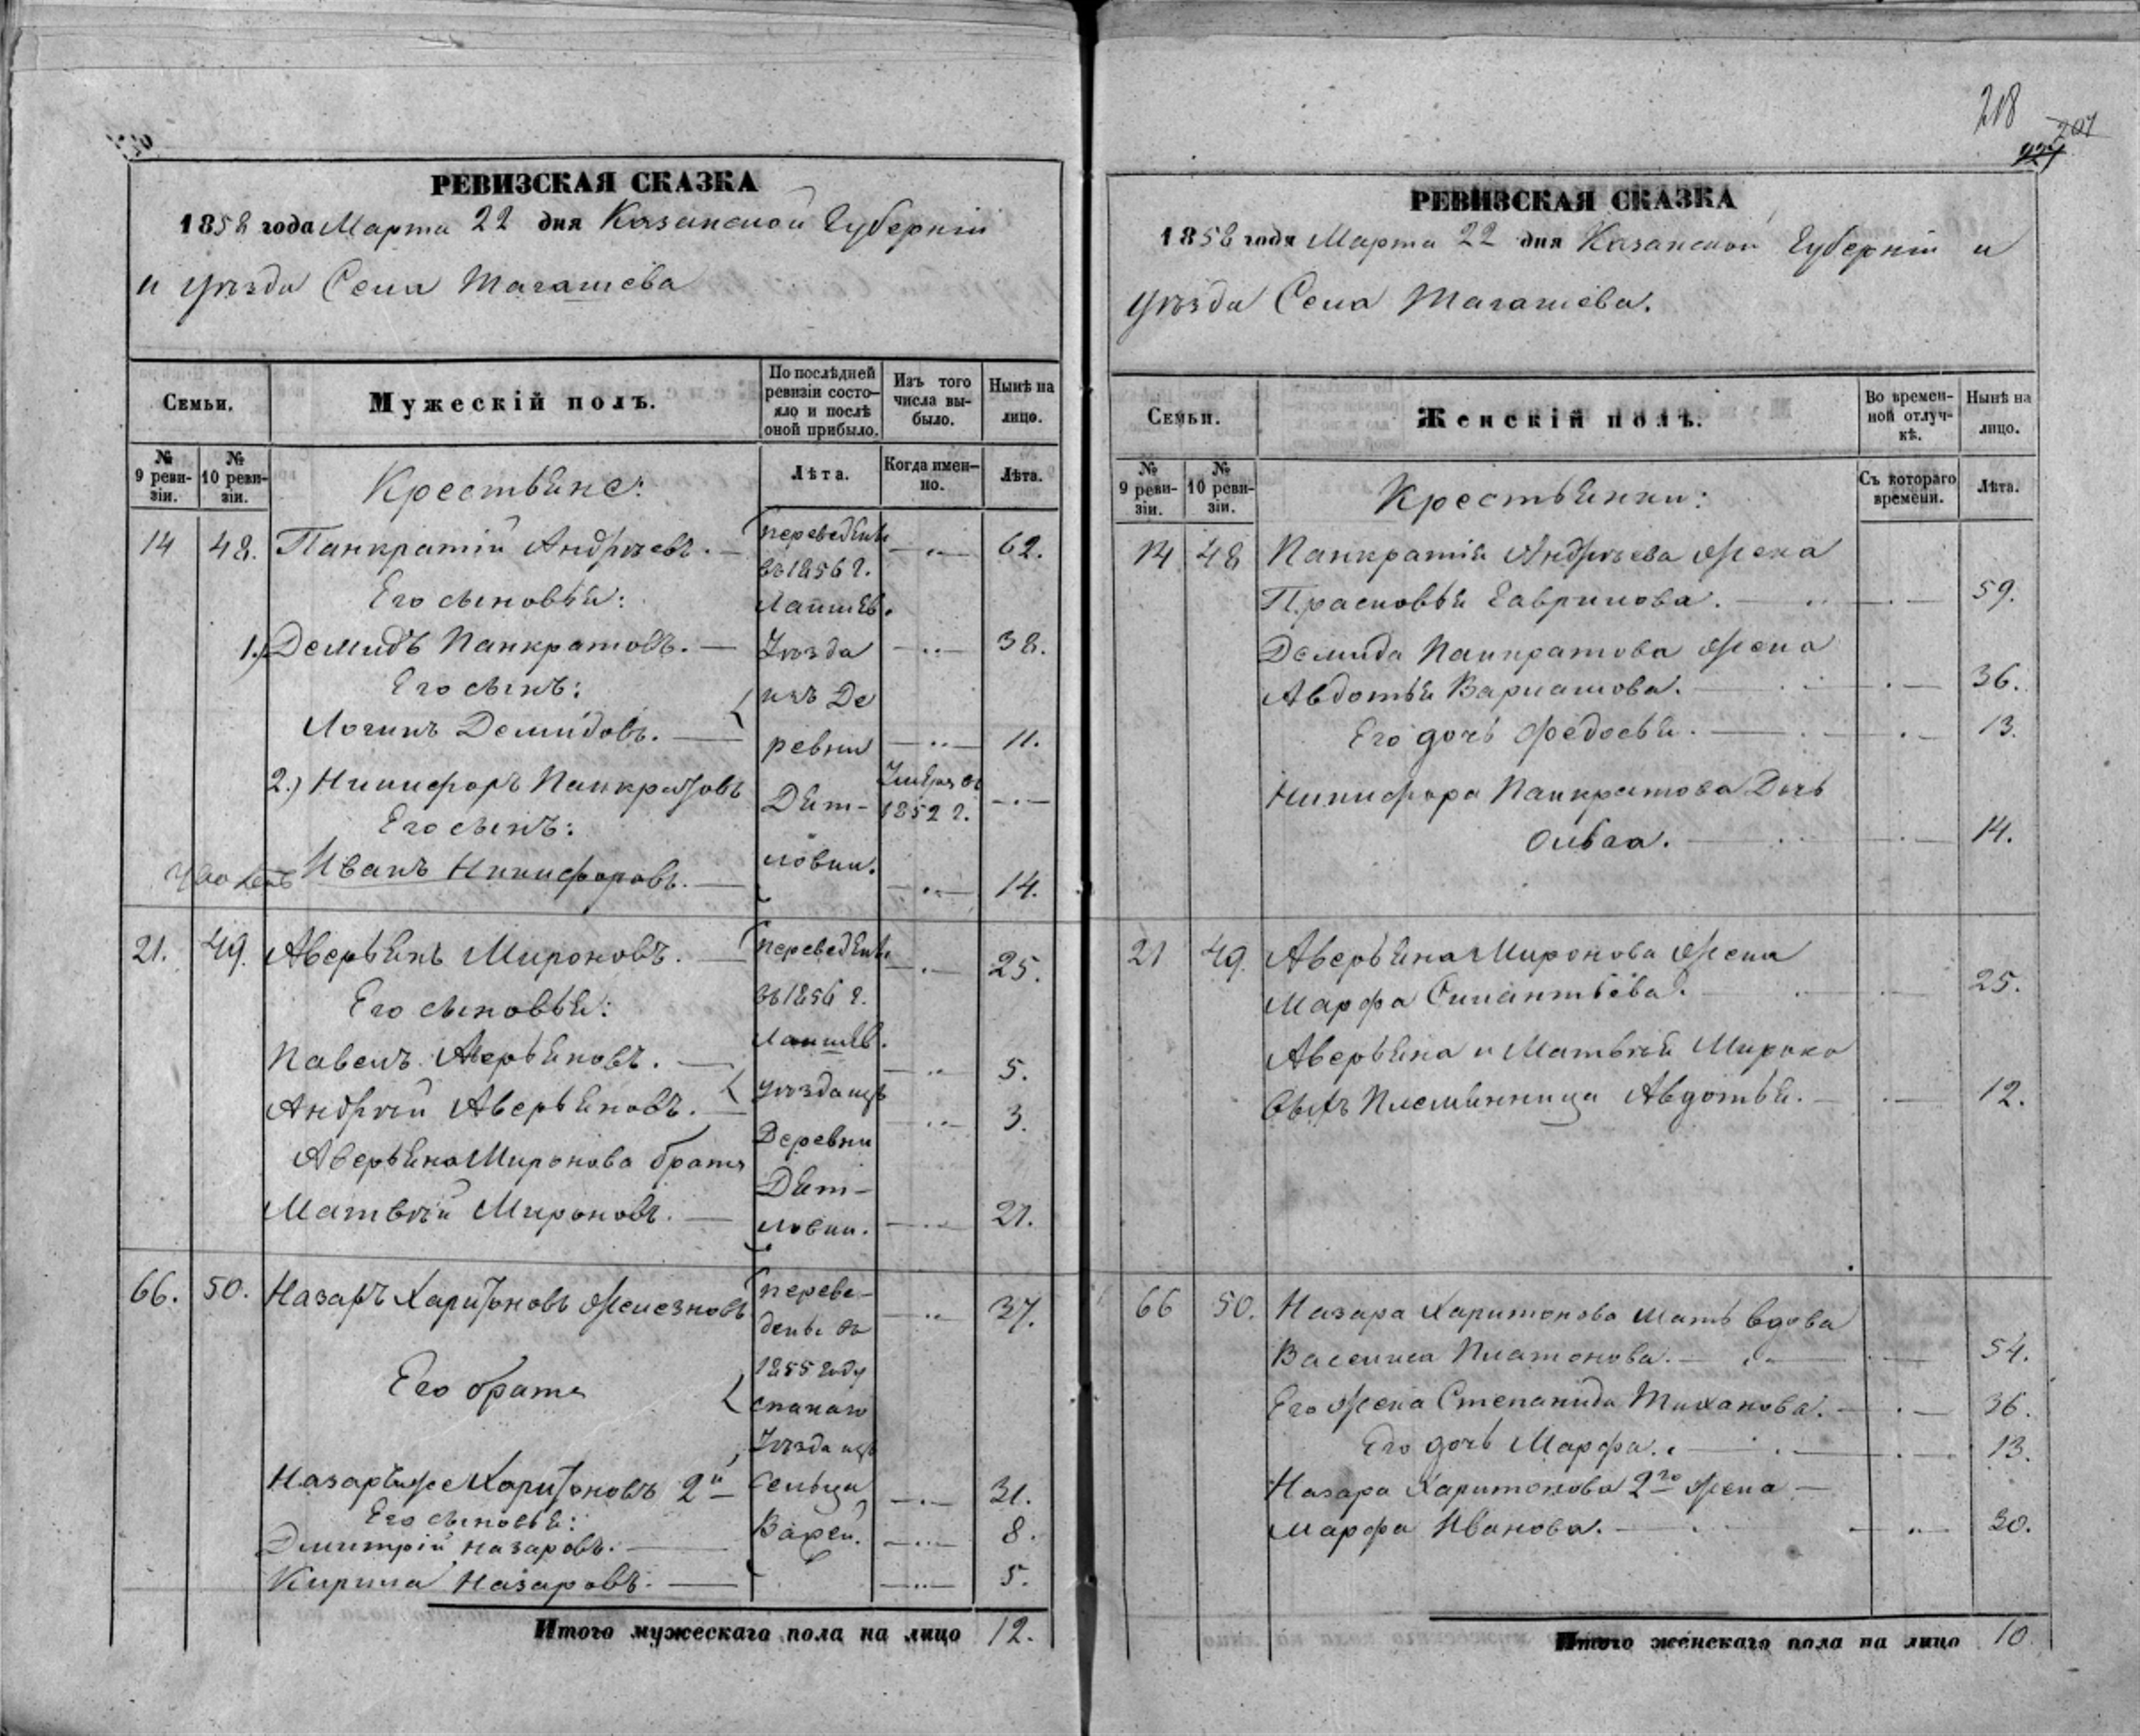 РЕВИЗСКАЯ СКАЗКА
1858 года Марта 22 дня Казанской Губерніи
и уѣзда Села Тагашева
Семьи.
Мужескій полъ.
По послѣдней ревизіи состо-
яло и послѣ оной прибыло.
Изъ того числа вы-
было.
Нынѣ на лицо.
№ 9 реви-
зіи.
№ 10 реви-
зіи.
Крестьяне:
Лѣта.
Когда имен-
но.
Лѣта.
14 48. Панкратій Андреевъ. — переведены 62.
въ 1856 г.
Его сыновья: Лаишев.
1.) Демидъ Панкратовъ. — Уѣзда 38.
Его сынъ: изъ Де
Логинъ Демидовъ. — ревни 11.
2.) Никифоръ Панкратовъ Дят- Умеръ въ 1852 г.
Его сынъ:
Иванъ Никифоровъ. — ловки. 14.
21. 49. Аверьянъ Мироновъ. — переведены 25.
въ 1856 г.
Его сыновья: Лаишев.
Павелъ Аверьяновъ. — уѣзда изъ 5.
Андрей Аверьяновъ. — Деревни 3.
Аверьяна Миронова братъ Дят-
Матвѣй Мироновъ. — ловки. 21.
66. 50. Назаръ Харитоновъ Железновъ переве- 37.
дены въ
1855 году
Его братъ
Уѣзда изъ
Назаръ же Харитоновъ 2й сельца 31.
Его сыновья:
Дмитрій Назаровъ. — 8.
Кирила Назаровъ. — 5.
Итого мужескаго пола на лицо 12.
218
201
РЕВИЗСКАЯ СКАЗКА
1858 года Марта 22 дня Казанской Губерніи и
уѣзда Села Тагашева.
Семьи.
Женскій полъ.
Во времен-
ной отлуч-
кѣ.
Нынѣ на лицо.
№ 9 реви-
зіи.
№ 10 реви-
зіи.
Крестьянки:
Съ котораго времени.
Лѣта.
14 48 Панкратія Андреева жена
Прасковья Гаврилова. — 59.
Демида Панкратова жена
Авдотья Варламова. — 36.
Его дочь Федосья. — 13.
Никифора Панкратова Дочь
Ольга. — 14.
21 49. Аверьяна Миронова жена
Марфа Силантьева. — 25.
Аверьяна и Матвѣя Мироно
выхъ Племянница Авдотья. — 12.
66 50. Назара Харитонова мать вдова
Василиса Платонова. — 54.
Его жена Степанида Тиханова. — 36.
Его дочь Марфа. — 13.
Назара Харитонова 2го жена —
Марфа Иванова. — 30.
Итого женскаго пола на лицо 10.